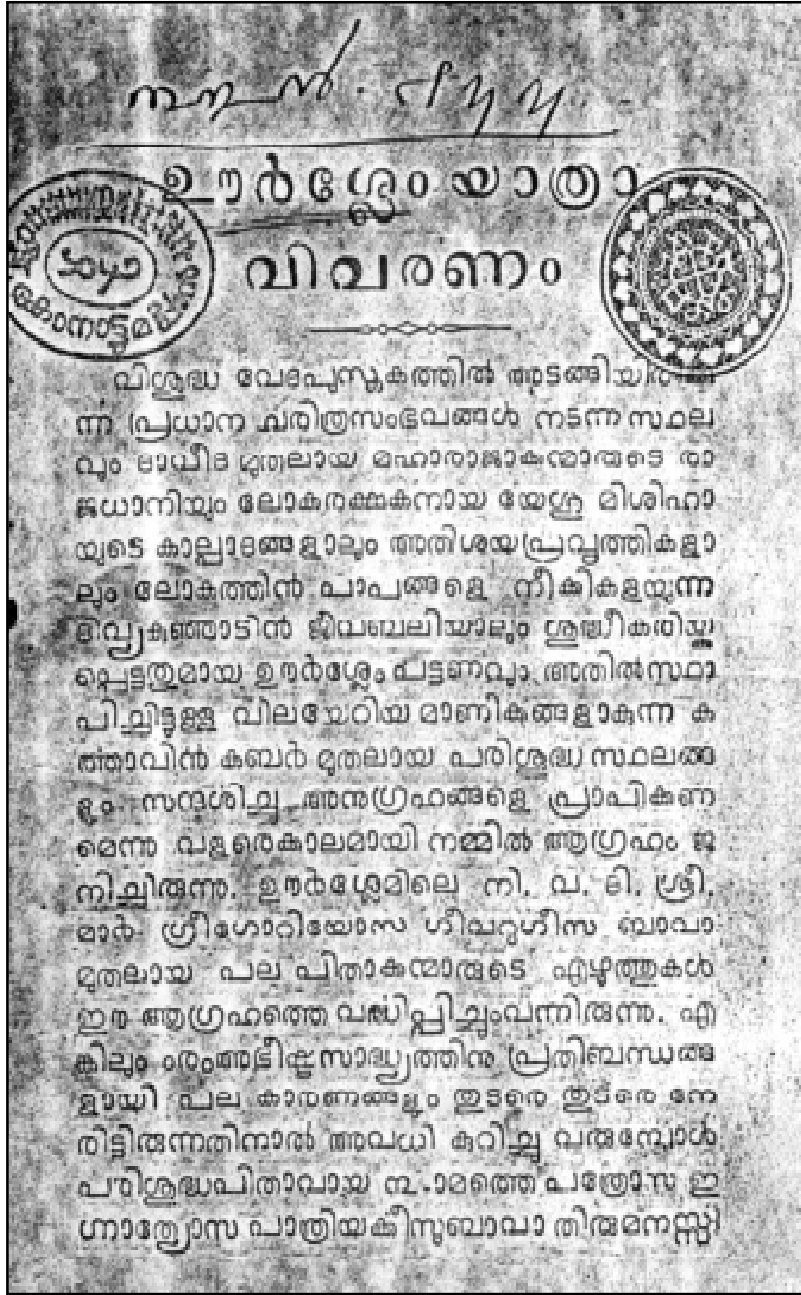 ഊർശ്ലേം യാത്രാ
വിവരണം
കോനാട്ടുമല്പാൻ
വിശുദ്ധ വേദപുസ്തകത്തിൽ അടങ്ങിയിരിക്കു
ന്ന പ്രധാന ചരിത്രസംഭവങ്ങൾ നടന്ന സ്ഥല
വും ദാവീദ മുതലായ മഹാരാജാക്കന്മാരുടെ രാ
ജധാനിയും ലോകരക്ഷകനായ യേശു മിശിഹാ
യുടെ കാല്പാദങ്ങളാലും അതിശയപ്രവൃത്തികളാ
ലും ലോകത്തിൻ പാപങ്ങളെ നീക്കികളയുന്ന
ദിവ്യകുഞ്ഞാടിൻ ജീവബലിയാലും ശുദ്ധീകരിയ്ക്ക
പ്പെട്ടതുമായ ഊർശ്ലേം പട്ടണവും അതിൽ സ്ഥാ
പിച്ചിട്ടുള്ള വിലയേറിയ മാണിക്കങ്ങളാകുന്ന ക
ത്താവിൻ കബർ മുതലായ പരിശുദ്ധ സ്ഥലങ്ങ
ളും സന്ദൎശിച്ചു അനുഗ്രഹങ്ങളെ പ്രാപിക്കണ
മെന്നു വളരെകാലമായി നമ്മിൽ ആഗ്രഹം ജ
നിച്ചിരുന്നു. ഊർശ്ലേമിലെ നി. വ. ദി. ശ്രീ.
മാർ ഗ്രീഗോറിയോസ ഗീവറുഗീസ ബാവാ
മുതലായ പല പിതാക്കന്മാരുടെ എഴുത്തുകൾ
ഈ ആഗ്രഹത്തെ വൎദ്ധിപ്പിച്ചുംവന്നിരുന്നു. എ
ങ്കിലും ഈഅഭീഷ്ടസാദ്ധ്യത്തിനു പ്രതിബന്ധങ്ങ
ളായി പല കാരണങ്ങളും തുടരെ തുടരെ നേ
രിട്ടിരുന്നതിനാൽ അവധി കുറിച്ചു വരുമ്പോൾ
പരിശുദ്ധപിതാവായ ൩-ാമത്തെ പത്രോസ ഇ
ഗ്നാത്യോസ പാത്രിയക്കീസുബാവാ തിരുമനസ്സി